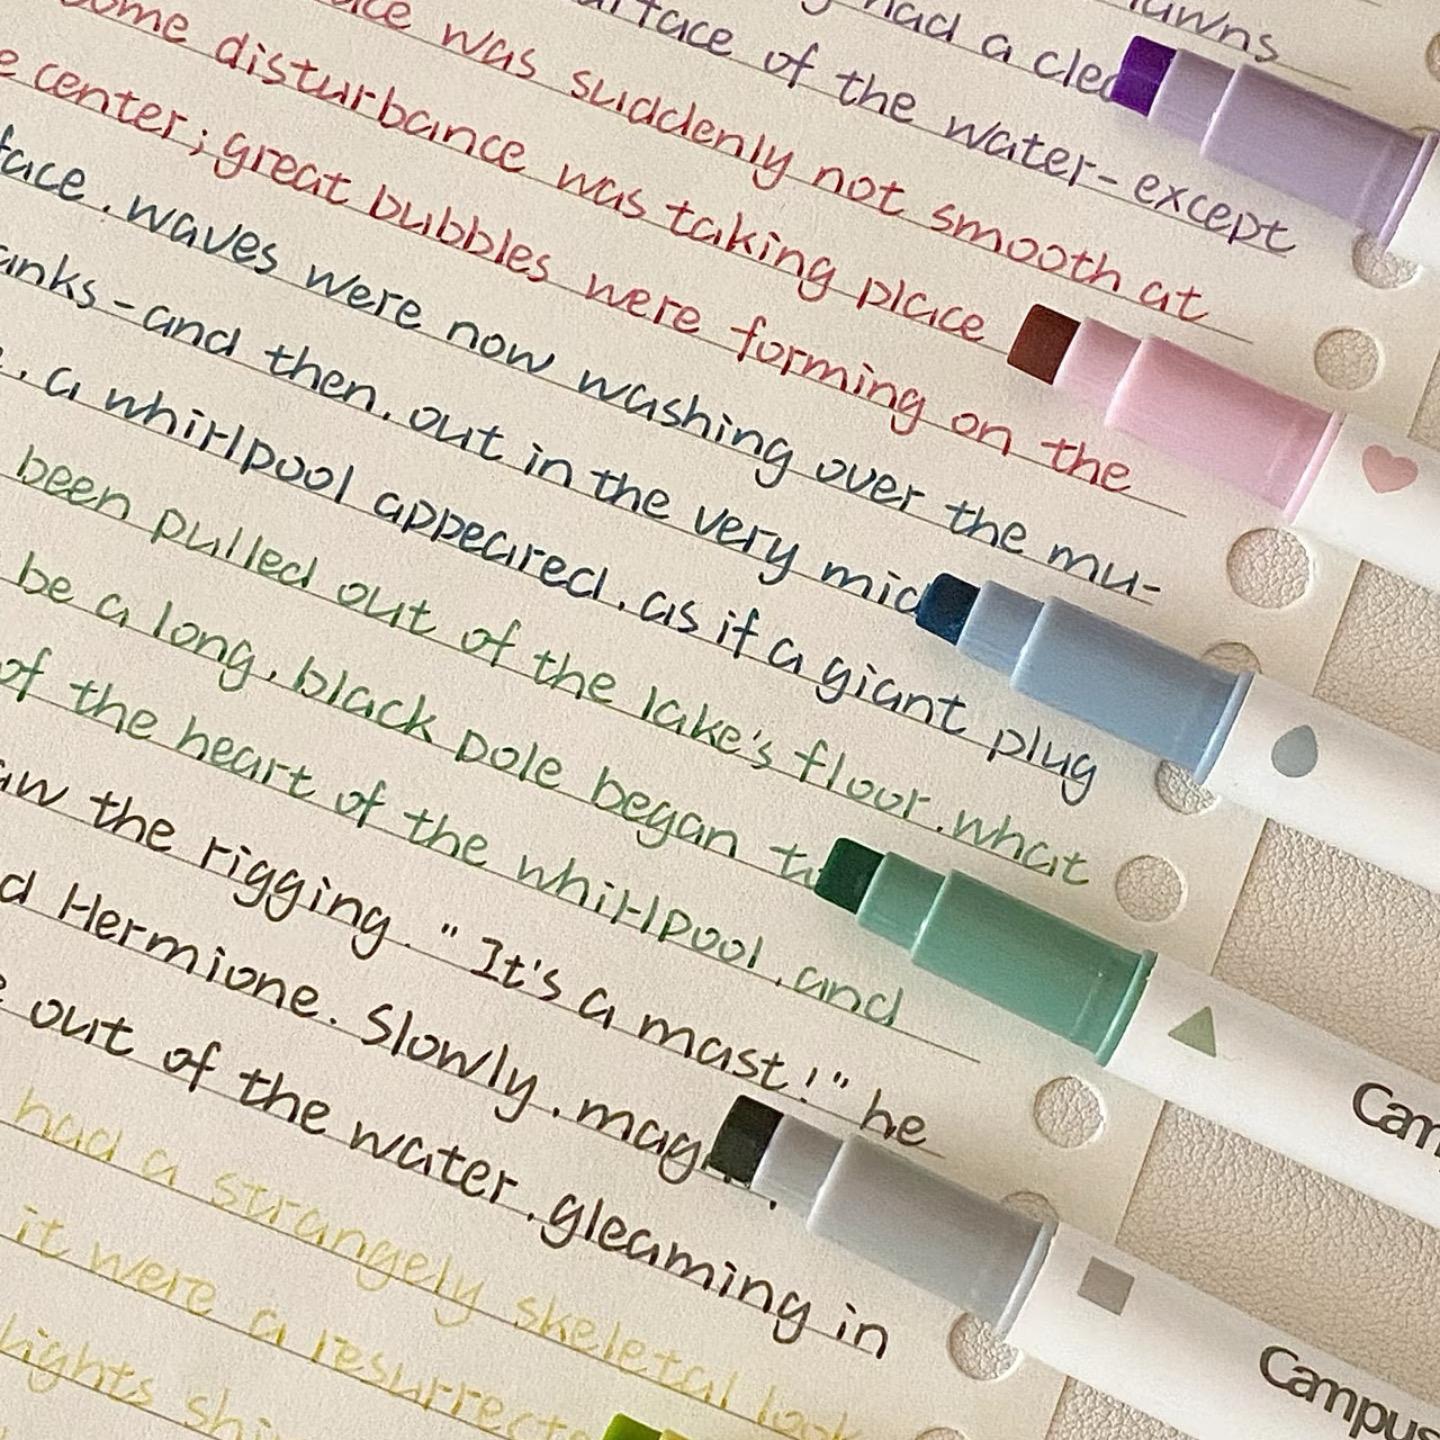 lawns
had a clea
surface of the water- except
was suddenly not smooth at
some disturbance was taking place
center; great bubbles were forming on the
face. waves were now washing over the mu-
anks - and then, out in the very mid
, a whirlpool appeared, as if a giant plug
been pulled out of the lake's floor. what
be a long, black pole began to
of the heart of the whirlpool, and
the rigging. "It's a mast!" he
Hermione. Slowly, mag
out of the water, gleaming in
had a strangely skeletal look
it were a resurrecte
lights shi
Cam
Campus